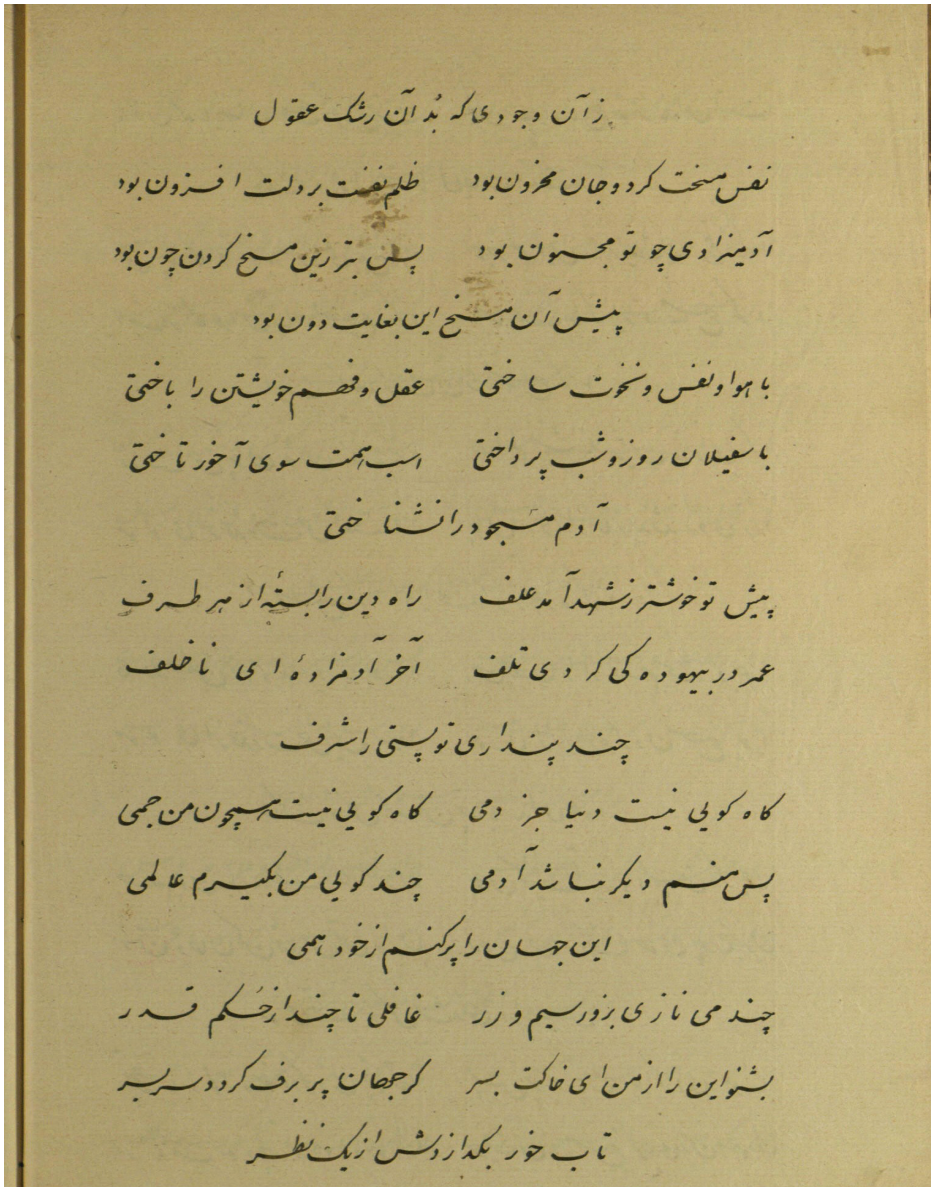 زآن وجودی که بُد آن رشک عقول
نفس مسخت کرد و جان محزون بود ظلم نفست بر دلت افزون بود
آدمیزادی چو تو مجنون بود پس بتر زین مسخ کردن چون بود
پیش آن مسخ این بغایت دون بود
با هوا و نفس و نخوت ساختی عقل و فهم خویشتن را باختی
با سفیلان روز و شب پرداختی اسب همت سوی آخور تاختی
آدم مسجود را نشناختی
پیش تو خوشتر ز شهد آمد علف راه دین را بستهٔ از هر طرف
عمر در بیهوده کی کردی تلف آخر آدمزادهٔ ای ناخلف
چند پنداری تو پستی را شرف
کاه کویی نیست دنیا جز دمی کاه کویی نیست همچون من جمی
پس منم دیکر نباشد آدمی چند کویی من بکیرم عالمی
این جهان را پر کنم از خود همی
چند می نازی بزور سیم و زر غافلی تا چند از حُکم قدر
بشنو این را از من ای خاکت بسر کر جهان پر برف کردد سربسر
تاب خور بکدازدش از یک نظر